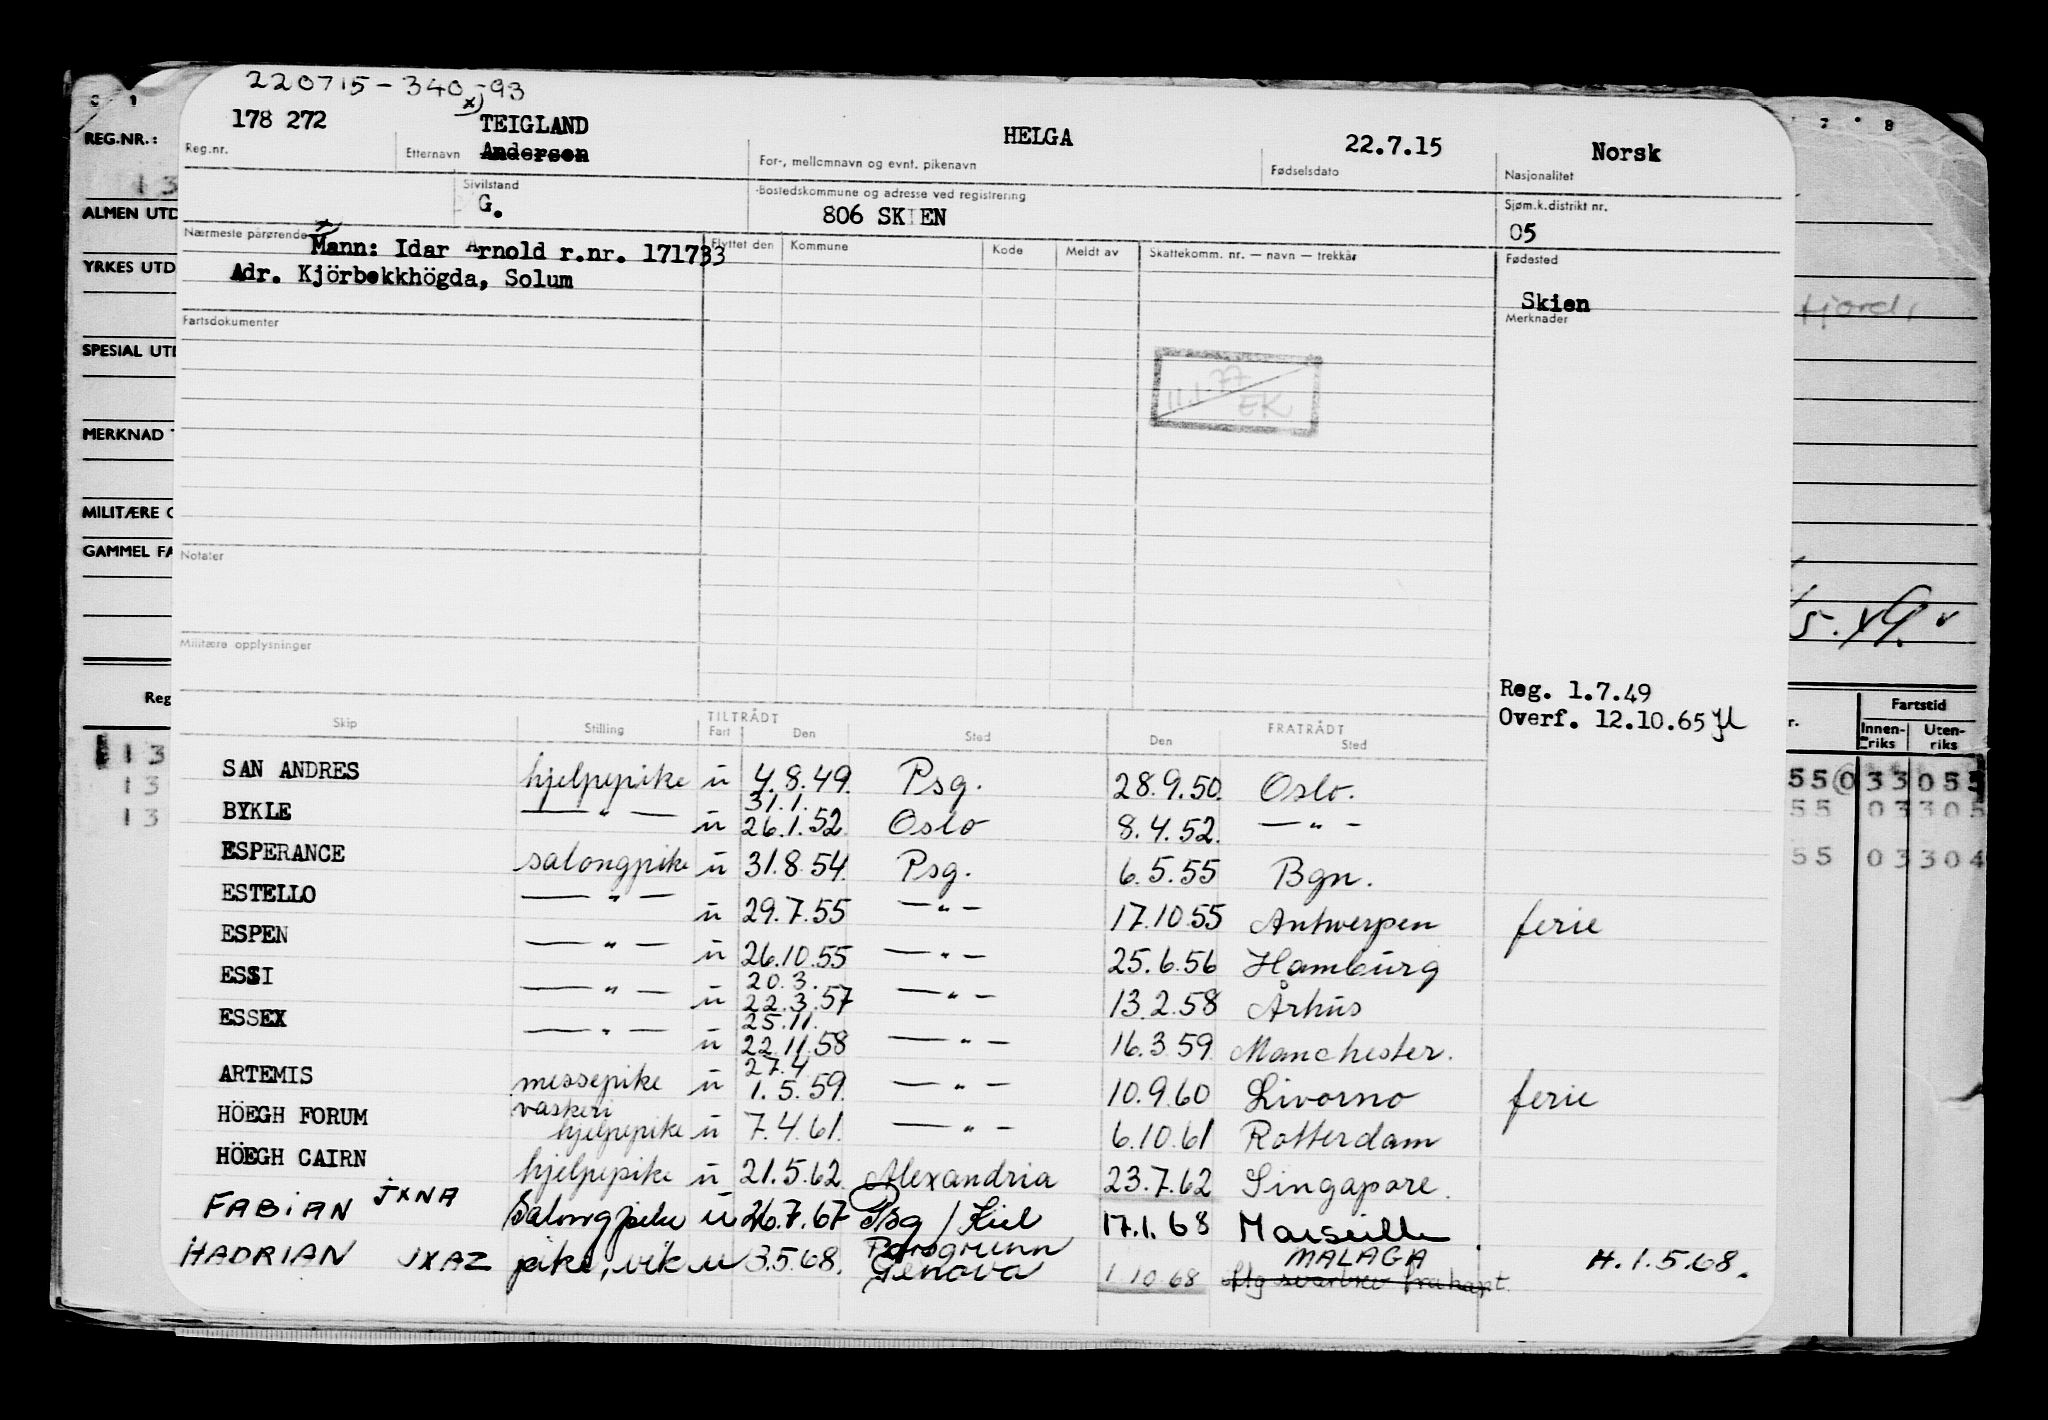 220715-340-93
178 272 x) TEIGLAND HELGA 22.7.15 Norsk
Reg.nr. Etternavn Andersen For-, mellomnavn og evnt. pikenavn Fødselsdato Nasjonalitet
Sivilstand Bostedskommune og adresse ved registrering Sjøm.k.distrikt nr.
G. 806 SKIEN 05
Nærmeste pårørende x) Mann: Idar Arnold r.nr. 171733 Flyttet den Kommune Kode Meldt av Skattekomm. nr. — navn — trekkår Fødested
Adr. Kjörbekkhögda, Solum Skien
Fartsdokumenter Merknader
11.1.77
EK
Notater
Militære opplysninger
Reg. 1.7.49
Overf. 12.10.65
Skip Stilling TILTRÅDT Fart Den Sted FRATRÅDT Den Sted
SAN ANDRES hjelpepike u 4.8.49. Psg. 28.9.50. Oslo.
31.1.
BYKLE — " — u 26.1.52. Oslo 8.4.52. — " —
ESPERANCE salongpike u 31.8.54. Psg. 6.5.55 Bgn.
ESTELLO — " — u 29.7.55 — " — 17.10.55 Antwerpen ferie
ESPEN — " — u 26.10.55 — " — 25.6.56 Hamburg
20.3.
ESSI — " — u 22.3.57 — " — 13.2.58 Århus
25.11.
ESSEX — " — u 22.11.58 — " — 16.3.59. Manchester.
27.4
ARTEMIS messepike u 1.5.59. — " — 10.9.60 Livorno ferie
vaskeri
HÖEGH FORUM hjelpepike u 7.4.61. — " — 6.10.61 Rotterdam
HÖEGH CAIRN hjelpepike u 21.5.62. Alexandria 23.7.62 Singapore.
FABIAN JXNA Salongpike u 26.7.67 Psg / Kiel 17.1.68 Marseille.
Porsgrunn MALAGA
HADRIAN JXAZ pike, vik u 3.5.68. Genova 1.10.68 H.1.5.68.
REG.NR.:
13
ALMEN UTD
YRKES UTD
SPESIAL UTD
MERKNAD
MILITÆRE
GAMMEL FA
Reg
13
13
13
7 8
fjord,
r. Fartstid
Innen-riks Uten-riks
55 0 33 055
55 03 305
55 03 304